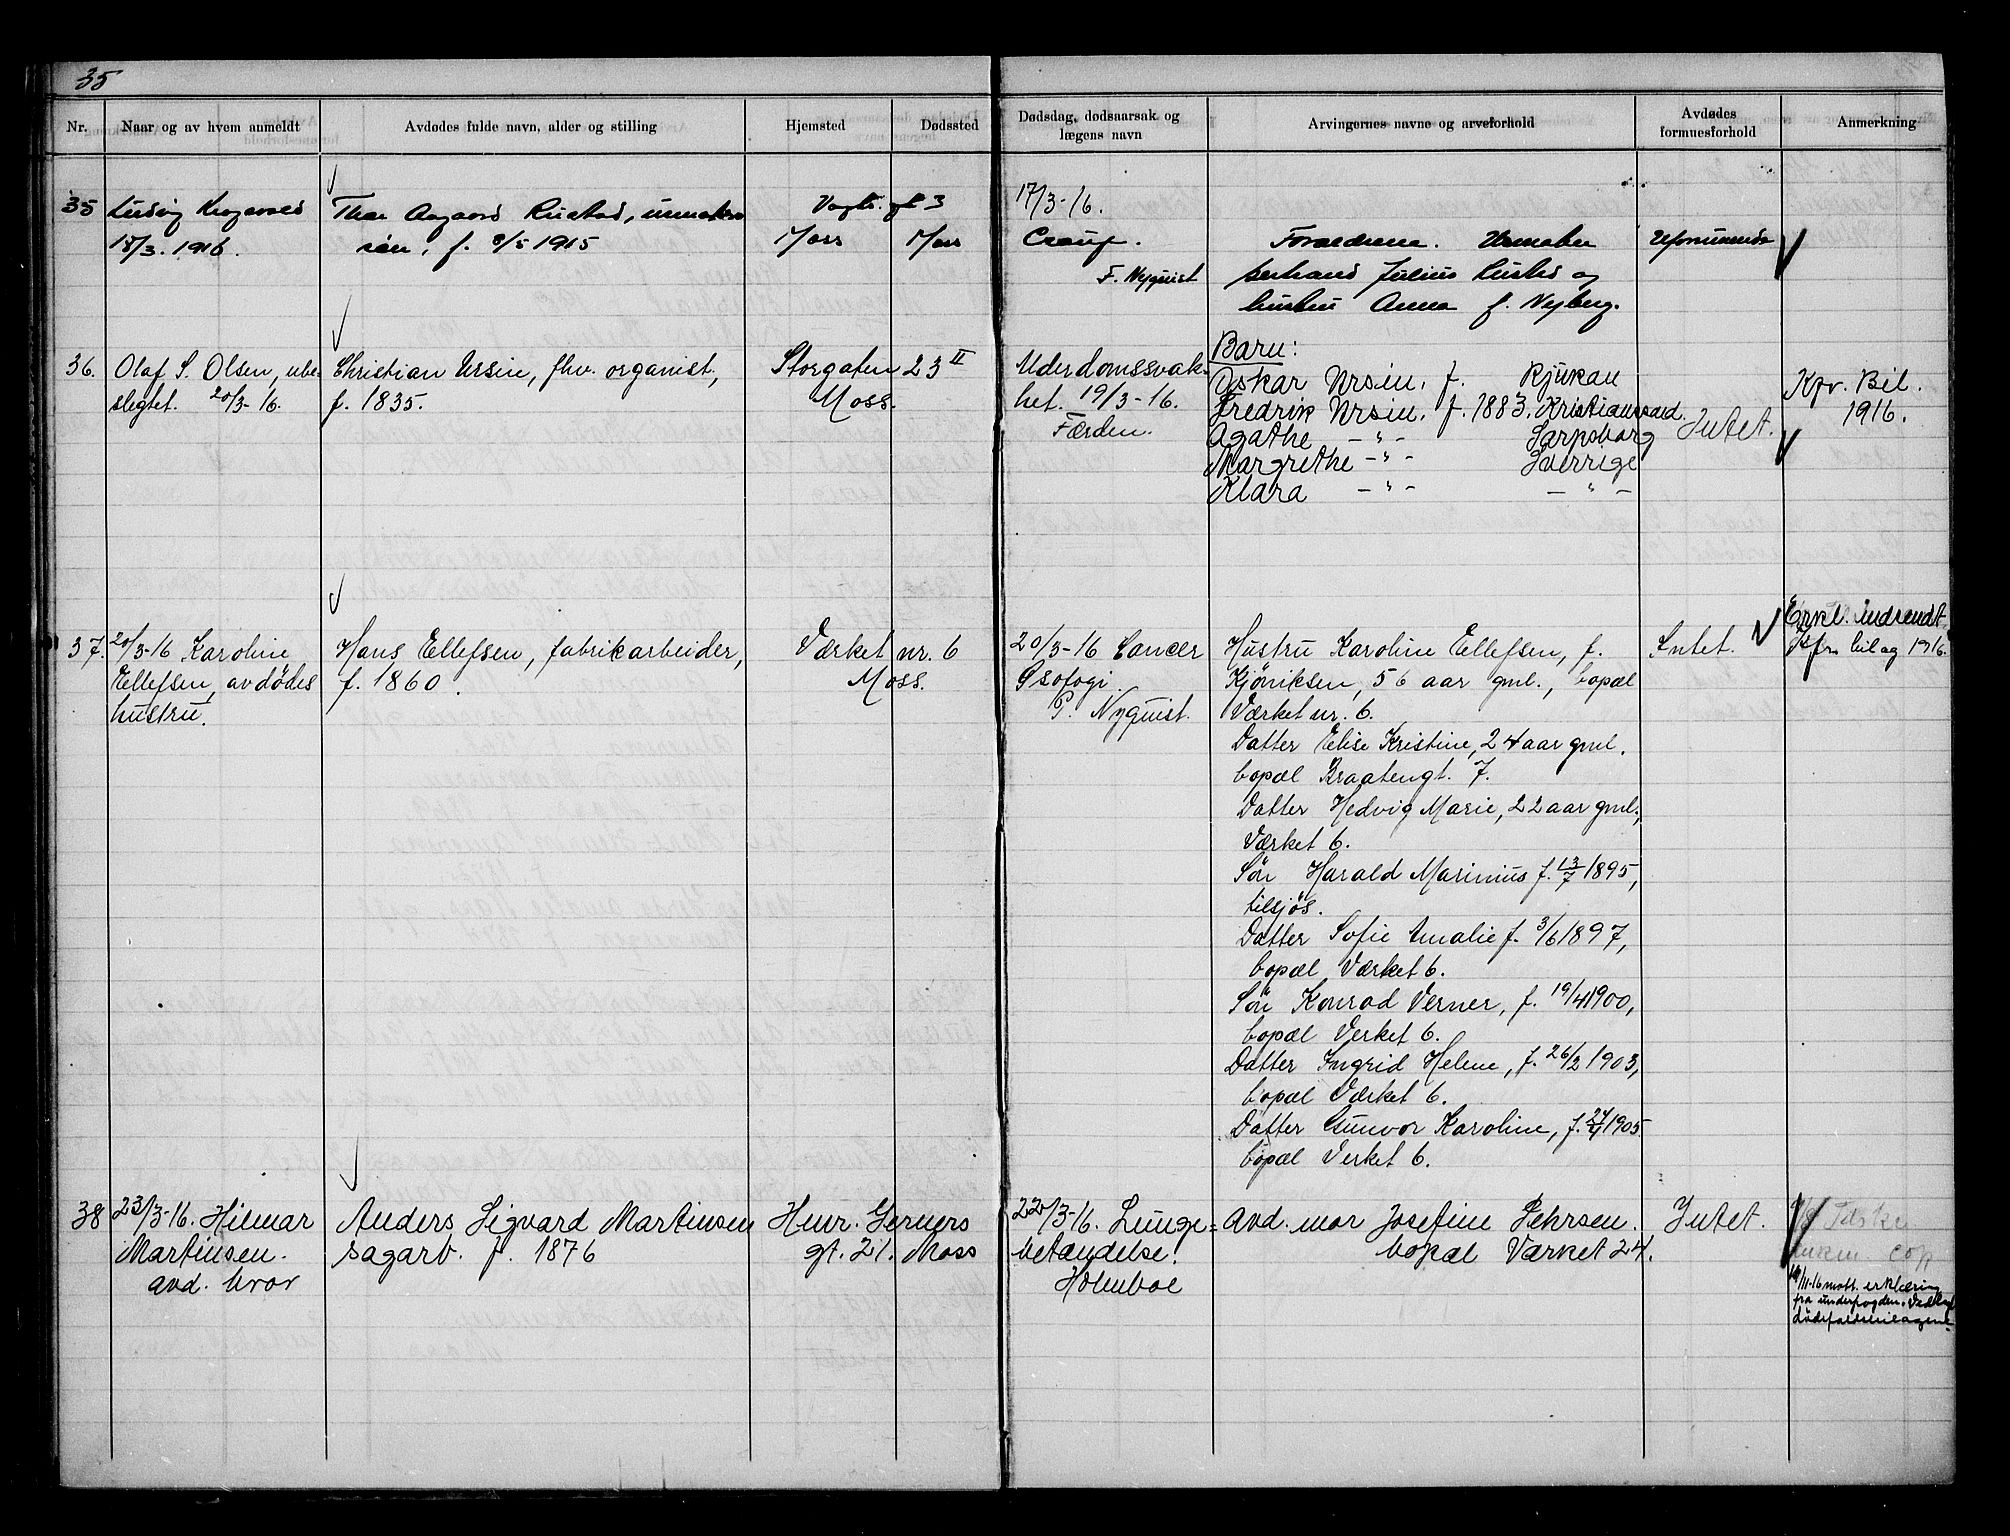 35
Nr. Naar og av hvem anmeldt Avdødes fulde navn, alder og stilling Hjemsted Dødssted Dødsdag, dødsaarsak og lægens navn Arvingernes navne og arveforhold Avdødes formuesforhold Anmerkning
35 Ludvig
18/3. 1916.
Thor Aagaard Rustad, urmaker
søn, f. 8/5 1915
Vogts. gt 3
Moss Moss
17/3-16.
Croup.
F. Nyquist
Forældrene. Urmaker
Julius Rustad og
hustru Anna f. Nyberg.
Uformuende
36. Olaf S. Olsen, ube-
slegtet. 20/3-16.
Christian Ursin, fhv. organist,
f. 1835.
Storgaten 23 II
Moss.
Alderdomssvak-
het. 19/3-16.
Færden.
Barn:
Oskar Ursin, f. Rjukan
Fredrik Ursin, f. 1883, Kristianssand.
Agathe — " — Sarpsborg
Margrethe — " — Sverrige
Klara — " — — " —
Intet.
Kpr. Bil.
1916.
37. 20/3-16 Karoline
Ellefsen, avdødes
hustru.
Hans Ellefsen, fabrikarbeider,
f. 1860.
Værket nr. 6
Moss.
20/3-16 Cancer
Øsofogi.
P. Nyquist.
Hustru Karoline Ellefsen, f.
Kjöniksen, 56 aar gml., bopæl
Værket nr. 6.
Datter Elise Kristine, 24 aar gml.
bopæl Braatengt. 7.
Datter Hedvig Marie, 22 aar gml.,
Værket 6.
Sön Harald Marinius f. 13/7 1895,
tilsjös.
Datter Sofie Amalie f. 3/6 1897,
bopæl Værket 6.
Sön Konrad Verner, f. 19/4 1900,
bopæl Verket 6.
Datter Ingrid Helene, f. 26/2 1903,
bopæl Værket 6.
Datter Gunvor Karoline, f. 24/4 1905
bopæl Verket 6.
Intet.
Erkl. indsendt.
bilag 1916.
38 23/3-16. Hilmar
Martinsen.
avd. bror
Anders Sigvard Martinsen
sagarb. f. 1876
Henr. Gerners
gt. 21. Moss
22/3-16. Lunge-
betændelse.
Holmboe
Avd. mor Josefine Pehrsen.
bopæl Værket 24.
Intet.
/11-16 mott. erklæring
fra underfogden. Vedlagt
dödsfaldsbilagene.